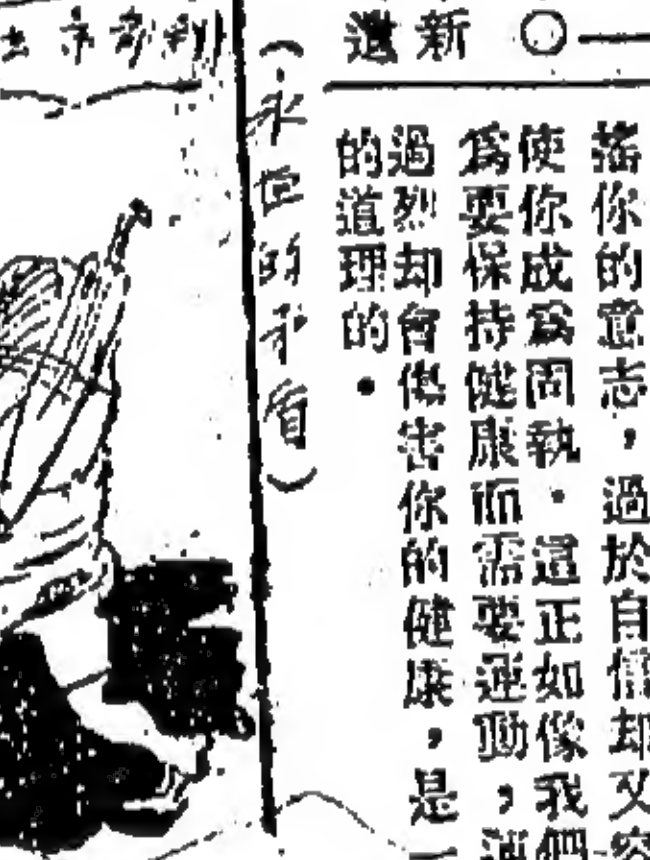 ○新
搖你的意志，過於自信却又容
使你成爲固執．這正如像我們
爲要保持健康而需要運動，運
過烈却會傷害你的健康，是一
的道理的．
（永世的矛盾）